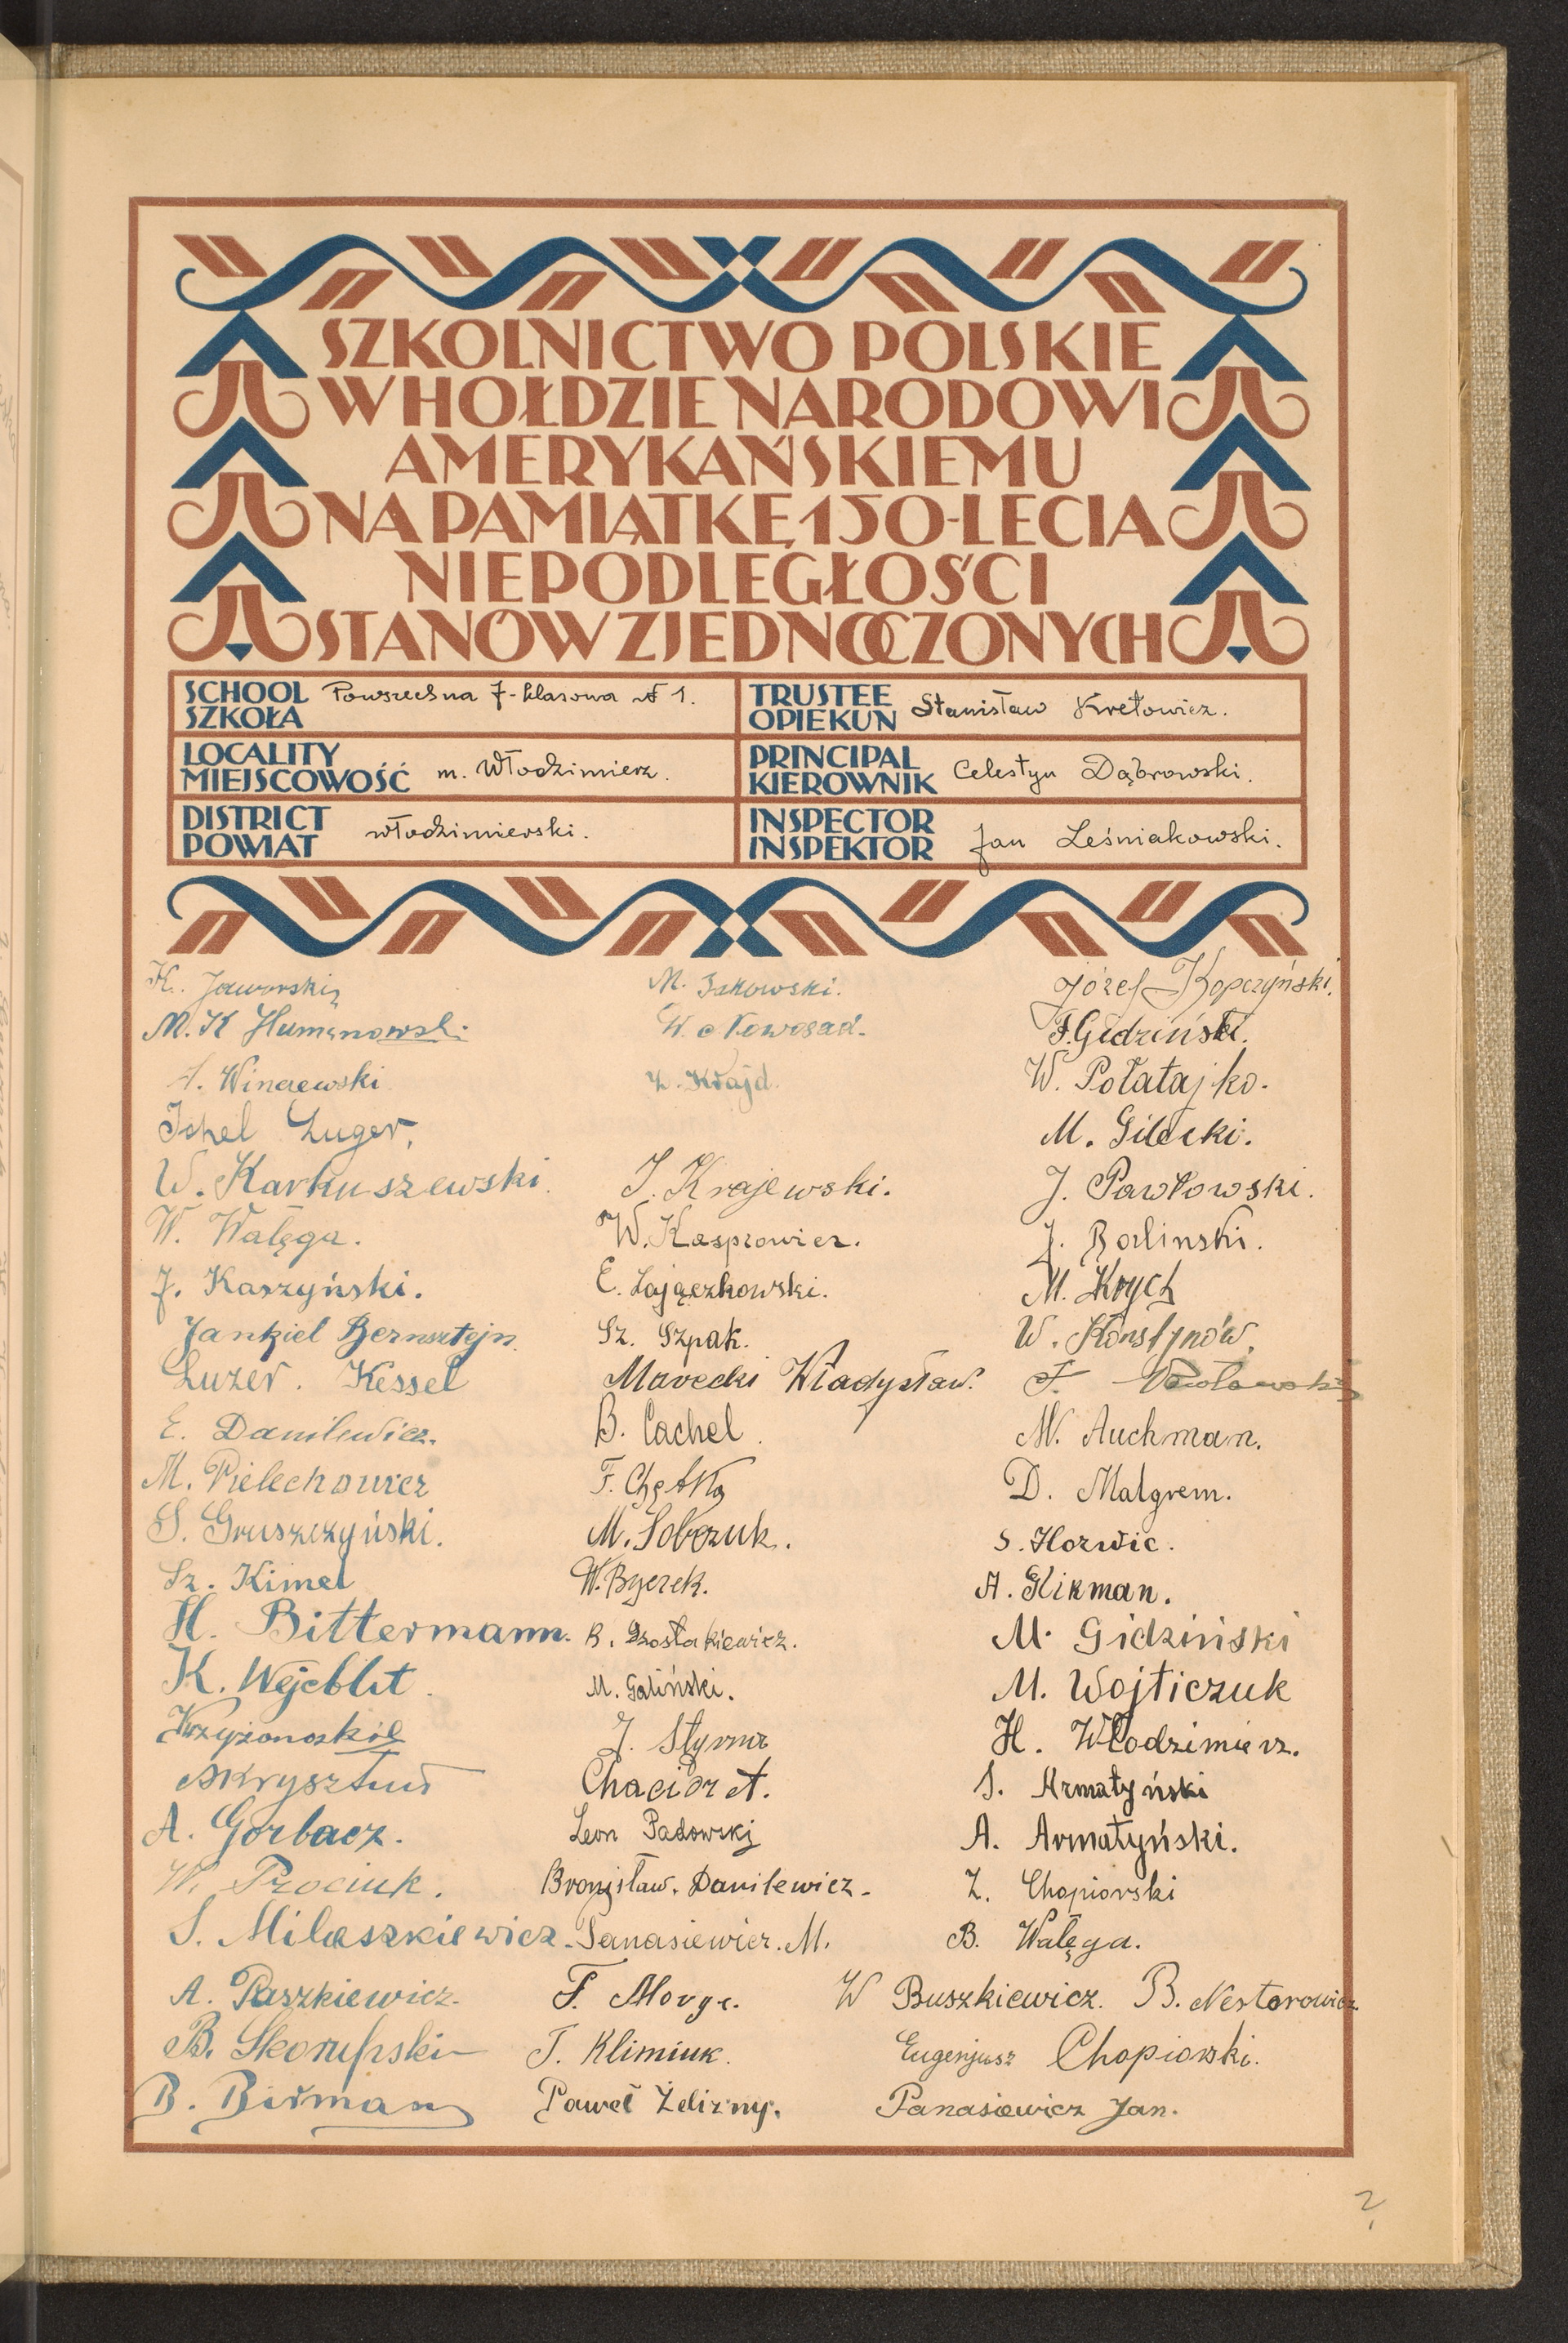 SZKOLNICTWO POLSKIE
W HOŁDZIE NARODOWI
AMERYKAŃSKIEMU
NA PAMIĄTKĘ 150-LECIA
NIEPODLEGŁOŚCI
STANÓW ZJEDNOCZONYCH
SCHOOL
SZKOŁA
Powszechna 7-klasowa № 1.
TRUSTEE
OPIEKUN
Stanisław Kretowicz.
LOCALITY
MIEJSCOWOŚĆ
m. Włodzimierz.
PRINCIPAL
KIEROWNIK
Celestyn Dąbrowski.
DISTRICT
POWIAT
włodzimierski.
INSPECTOR
INSPEKTOR
Jan Leśniakowski.
K. Jaworski
M. K
Winczewski
Ichel Luger.
W. Karkuszewski.
W. Wałęga.
J. Kaszyński.
Jankiel Bernsztejn.
Luzer. Kessel
E. Danilewicz.
M. Pielechowicz
S. Gruszczyński.
Sz. Kimel
H. Bittermann.
K. Wejcblit.
A. Gorbacz.
W. Prociuk.
S. Milaszkiewicz.
A. Paszkiewicz.
B. Skorupski
B. Birman
M. Sakowski.
W. Nowosad.
J. Krajewski.
W. Kasprowicz.
E. Zajączkowski.
Sz. Szpak.
Marecki Władysław.
B. Cachel.
F. Chętko
M. Sobczuk.
W. Bycrek.
M. Galiński.
J. Styrnu
Chacior A.
Leon Sadowski
Bronisław. Danilewicz.
Panasiewicz. M.
F.
T. Klimiuk.
Paweł Żelizny.
Józef Kopczyński.
F. Gidziński.
W. Połatajko.
M. Gilecki.
J. Pawłowski.
J. Barlinski.
M. Krych
W. Konstynów.
F.
M. Auchman.
D. Malgrem.
S. Horwic.
A. Klikman.
M. Gidziński
M. Wojticzuk
H. Włodzimierz.
S. Armatyński
A. Armatyński.
Z. Chopiorski
B. Wałęga.
W Buszkiewicz. B. Nestorowicz.
Eugenjusz Chopiorski.
Panasiewicz Jan.
2.